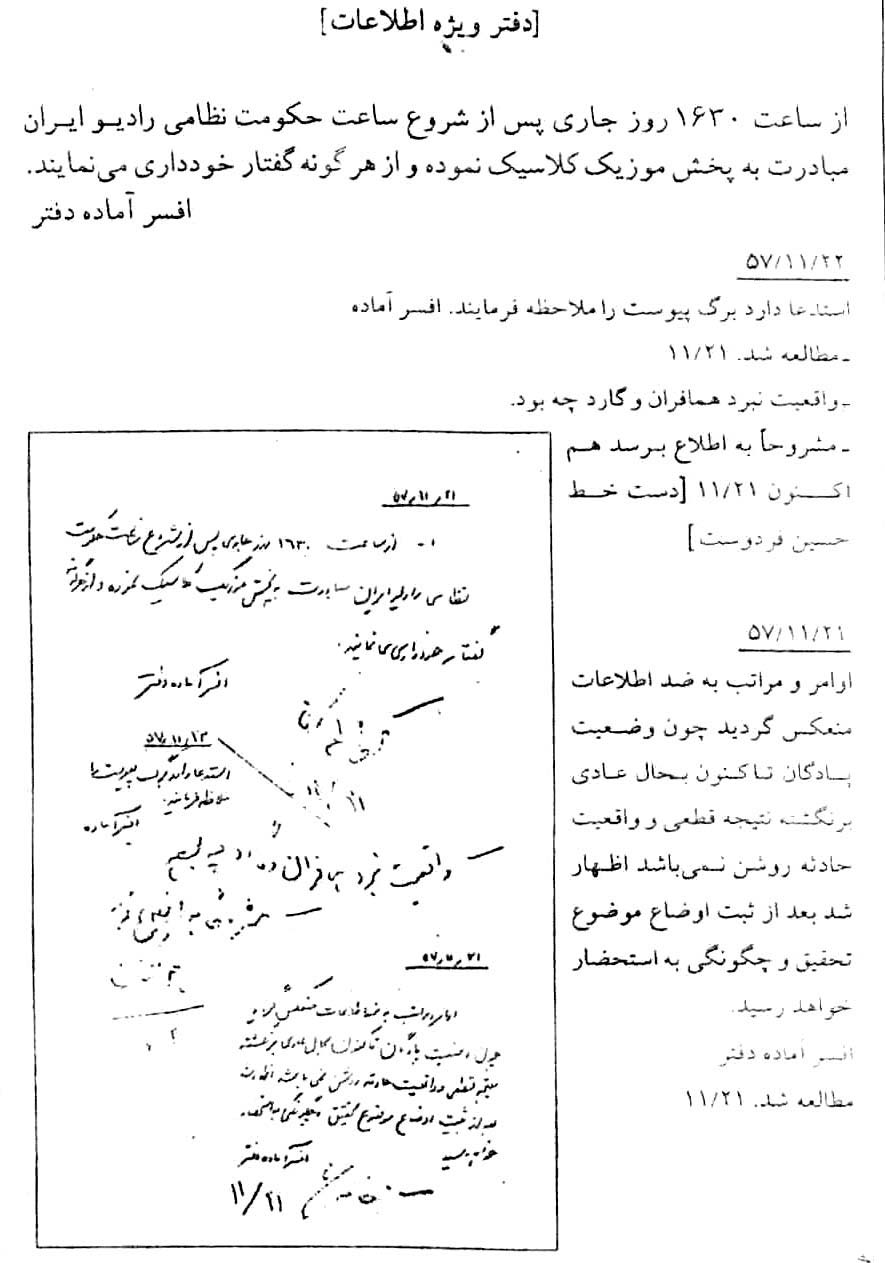 [دفتر ویژه اطلاعات]
از ساعت ۱۶۳۰ روز جاری پس از شروع ساعت حکومت نظامی رادیو ایران
مبادرت به پخش موزیک کلاسیک نموده و از هر گونه گفتار خودداری می‌نمایند.
افسر آماده دفتر
۵۷/۱۱/۲۲
استدعا دارد برگ پیوست را ملاحظه فرمایند. افسر آماده
ـ مطالعه شد. ۱۱/۲۱
ـ واقعیت نبرد همافران و گارد چه بود.
ـ مشروحاً به اطلاع برسد هم
اکنون ۱۱/۲۱ [دست خط
حسین فردوست]
۵۷/۱۱/۲۱
اوامر و مراتب به ضد اطلاعات
منعکس گردید چون وضعیت
پادگان تاکنون بحال عادی
برنگشته نتیجه قطعی و واقعیت
حادثه روشن نمی‌باشد اظهار
شد بعد از ثبت اوضاع موضوع
تحقیق و چگونگی به استحضار
خواهد رسید.
افسر آماده دفتر
مطالعه شد. ۱۱/۲۱
۵۷/۱۱/۲۱
۱- از ساعت ۱۶۳۰ روز جاری پس از شروع ساعت حکومت
نظامی رادیو ایران مبادرت به پخش موزیک کلاسیک نموده و از هرگونه
گفتار خودداری می‌نمایند.
افسر آماده دفتر
استدعا دارد برگ پیوست را
ملاحظه فرمایند.
افسر آماده
واقعیت نبرد همافران و گارد چه
۵۷/۱۱/۲۱
اوامر و مراتب به ضد اطلاعات منعکس گردید
چون وضعیت پادگان تاکنون بحال عادی برنگشته
نتیجه قطعی و واقعیت حادثه روشن نمی‌باشد اظهار شد
بعد از ثبت اوضاع موضوع تحقیق و چگونگی به استحضار
خواهد رسید
افسر آماده دفتر
۱۱/۲۱